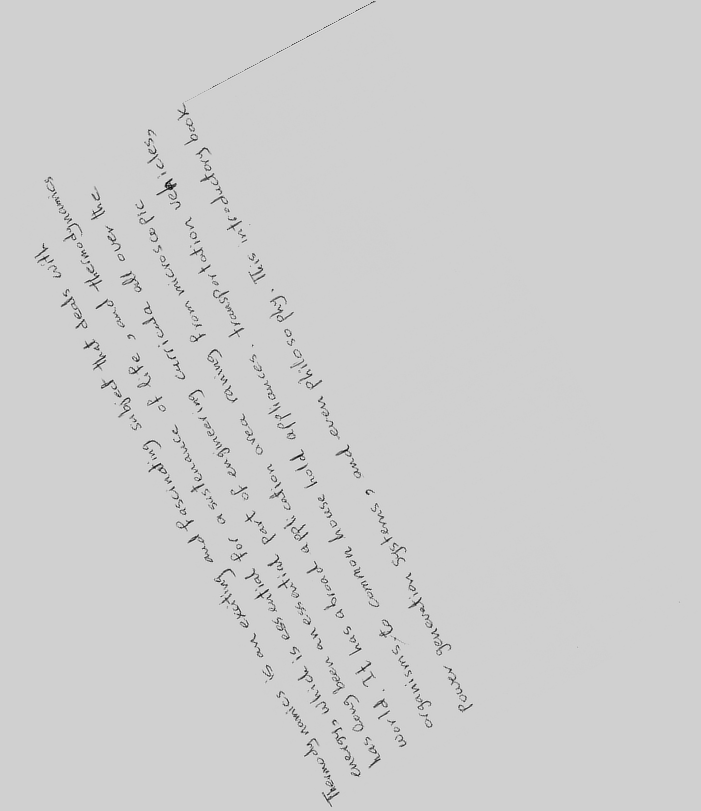 Thermodynamics is an exciting and fascinating subject that deals with
energy, which is essential for a sustenance of life, and thermodynamics
has long been an essential part of engineering curricula all over the
world. It has a broad application area raning from microscopic
organisms, to common house hold appliances. transportation vehicles,
Power generation systems, and even philosophy. This introductory book